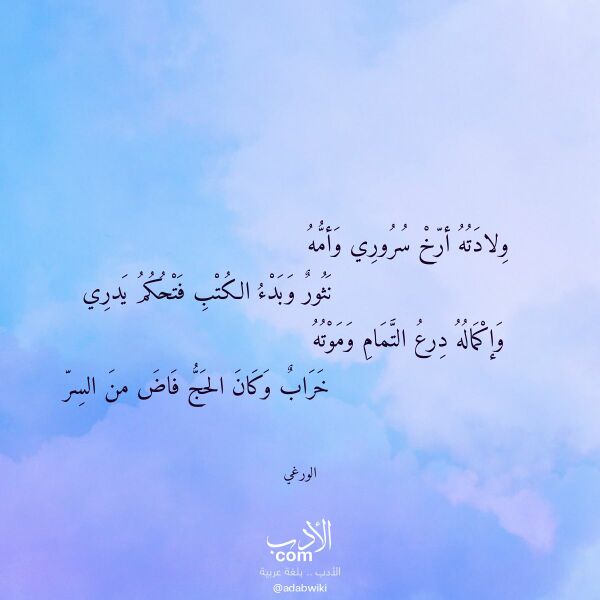 وِلادَتُهُ أرّخْ سُرُورِي وَأمُّهُ
نَثُورٌ وَبَدْءُ الكُتْبِ فَتْحُكُمُ يَدرِي
وَإكْمَالُهُ دِرعُ التَّمَامِ وَمَوْتُهُ
خَرَابٌ وَكَانَ الحَجُّ فَاضَ منَ السِرّ
الورغي
الأدب
com
الأدب .. بلغة عربية
@adabwiki